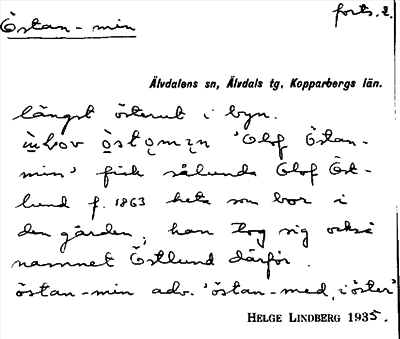 Östan-min
forts. 2.
Älvdalens sn, Älvdals tg, Kopparbergs län.
längst österut i byn.
östomin 'Olof Östan-
min' fick sålunda Olof Öst-
lund f. 1863 heta som bor i
den gården, han tog sig också
namnet Östlund därför.
östan-min adv. 'östan-med, i öster'
HELGE LINDBERG 1935.